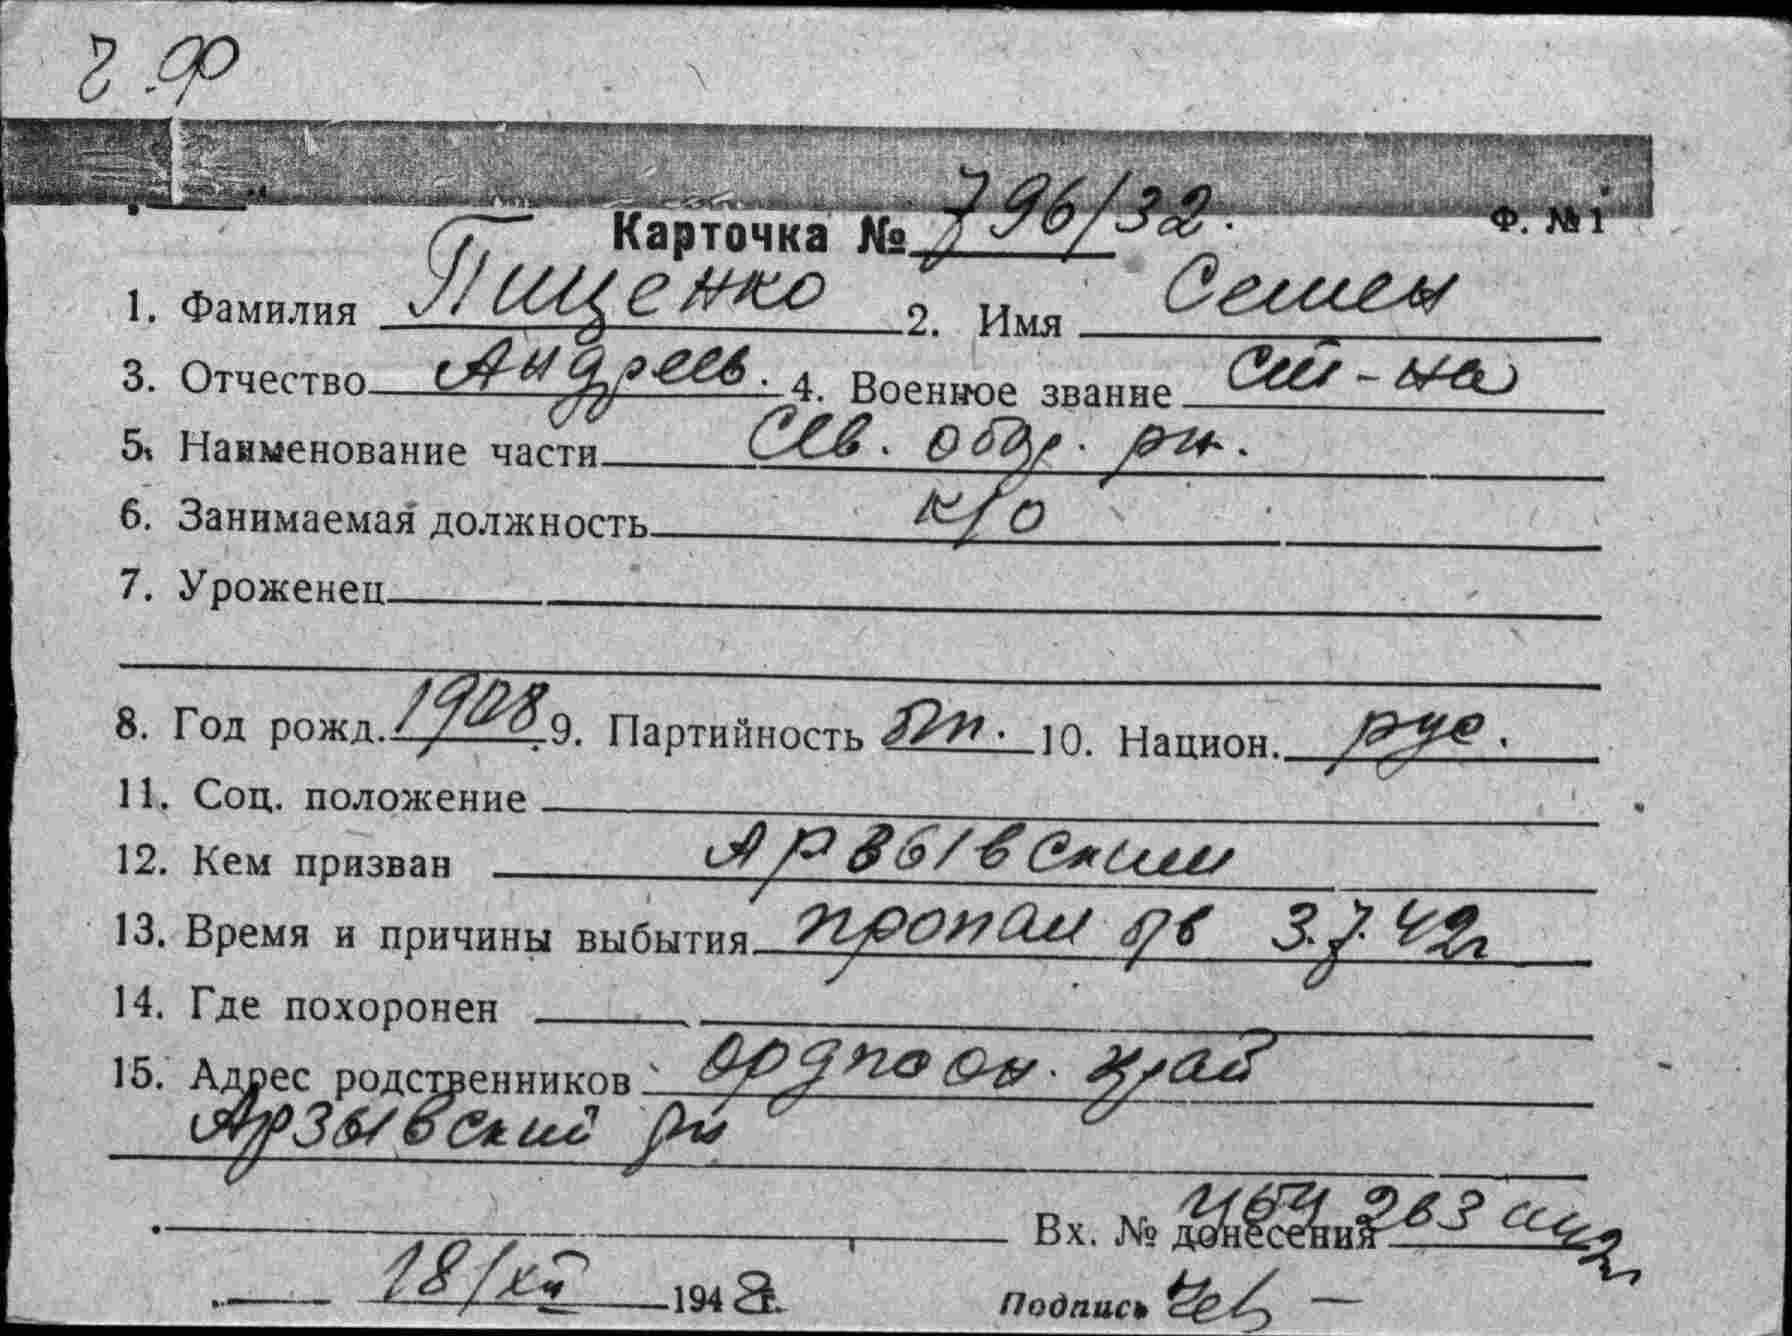 Ч.Ф
Карточка № 796/32. Ф. № 1
1. Фамилия Пищенко 2. Имя Семен
3. Отчество Андреев. 4. Военное звание ст-на
5. Наименование части Сев. обор. рн.
6. Занимаемая должность к/о
7. Уроженец
8. Год рожд. 1908 9. Партийность бп. 10. Национ. рус.
11. Соц. положение
12. Кем призван Арзывским
13. Время и причины выбытия пропал б/в 3.7.42г
14. Где похоронен
15. Адрес родственников край
Арзывский рн
Вх. № донесения
18/XII 1948г. Подпись